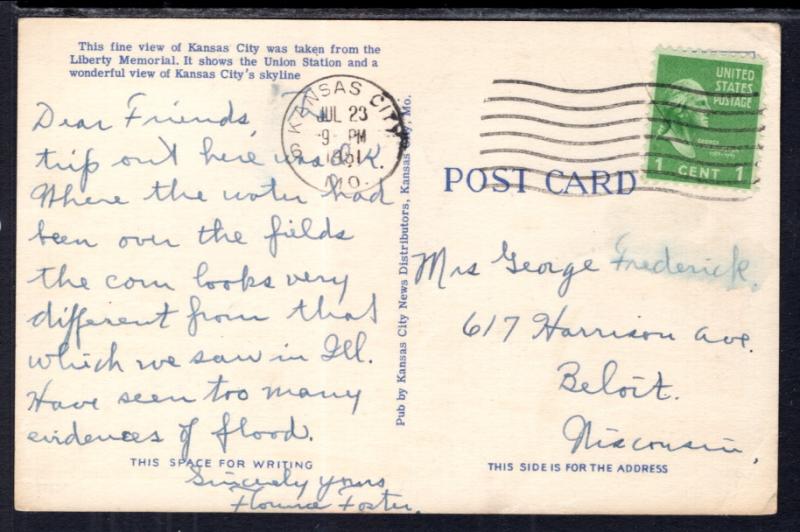 This fine view of Kansas City was taken from the
Liberty Memorial. It shows the Union Station and a
wonderful view of Kansas City's skyline
Dear Friends,
trip out here was O.K.
Where the water had
been over the fields
the corn looks very
different from that
which we saw in Ill.
Have seen too many
evidences of flood.
THIS SPACE FOR WRITING
Sincerely yours
Florence Foster.
Pub by Kansas City News Distributors, Kansas City, Mo.
KANSAS CITY
JUL 23
9 - PM
1951
MO.
UNITED
STATES
POSTAGE
1 CENT 1
POST CARD
Mrs George Frederick.
617 Harrison Ave.
Beloit.
Wisconsin,
THIS SIDE IS FOR THE ADDRESS